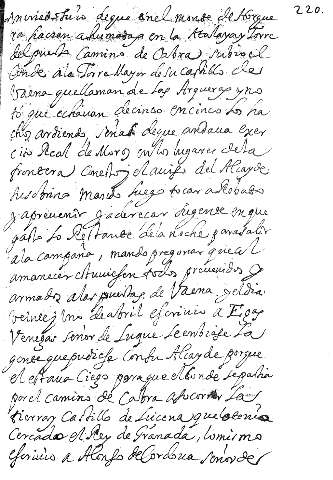 220.
de que en el monte de Horque
ra hacian ahumadas en la Atalaya y Torre
del puerto camino de Cabra subio el
Conde a la Torre Mayor de su Castillo de
Vaena que llaman de los Arqueros y no
tó que echavan de cinco en cinco los ha
chos ardiendo, señal de que andava exer
cito Real de Moros en los lugares de la
frontera con esto y el aviso del Alcayde
su sobrino mando luego tocar a Rebato
y aprevenir y adereçar de gente en que
gasto lo Restante de la noche para salir
a la campaña, mando pregonar que al
amanecer estuviesen todos prevenidos y
armados a las puertas de Vaena, y el dia
veinte y uno de abril escrivio a Egas
Venegas señor de Luque le embiase la
gente que pudiese con su Alcayde porque
el estava Ciego para que el Conde se partia
por el camino de Cabra a socorrer la
tierra y Castillo de Lucena que tenia
Cercado el Rey de Granada, lo mismo
escrivio a Alonso de Cordova señor de